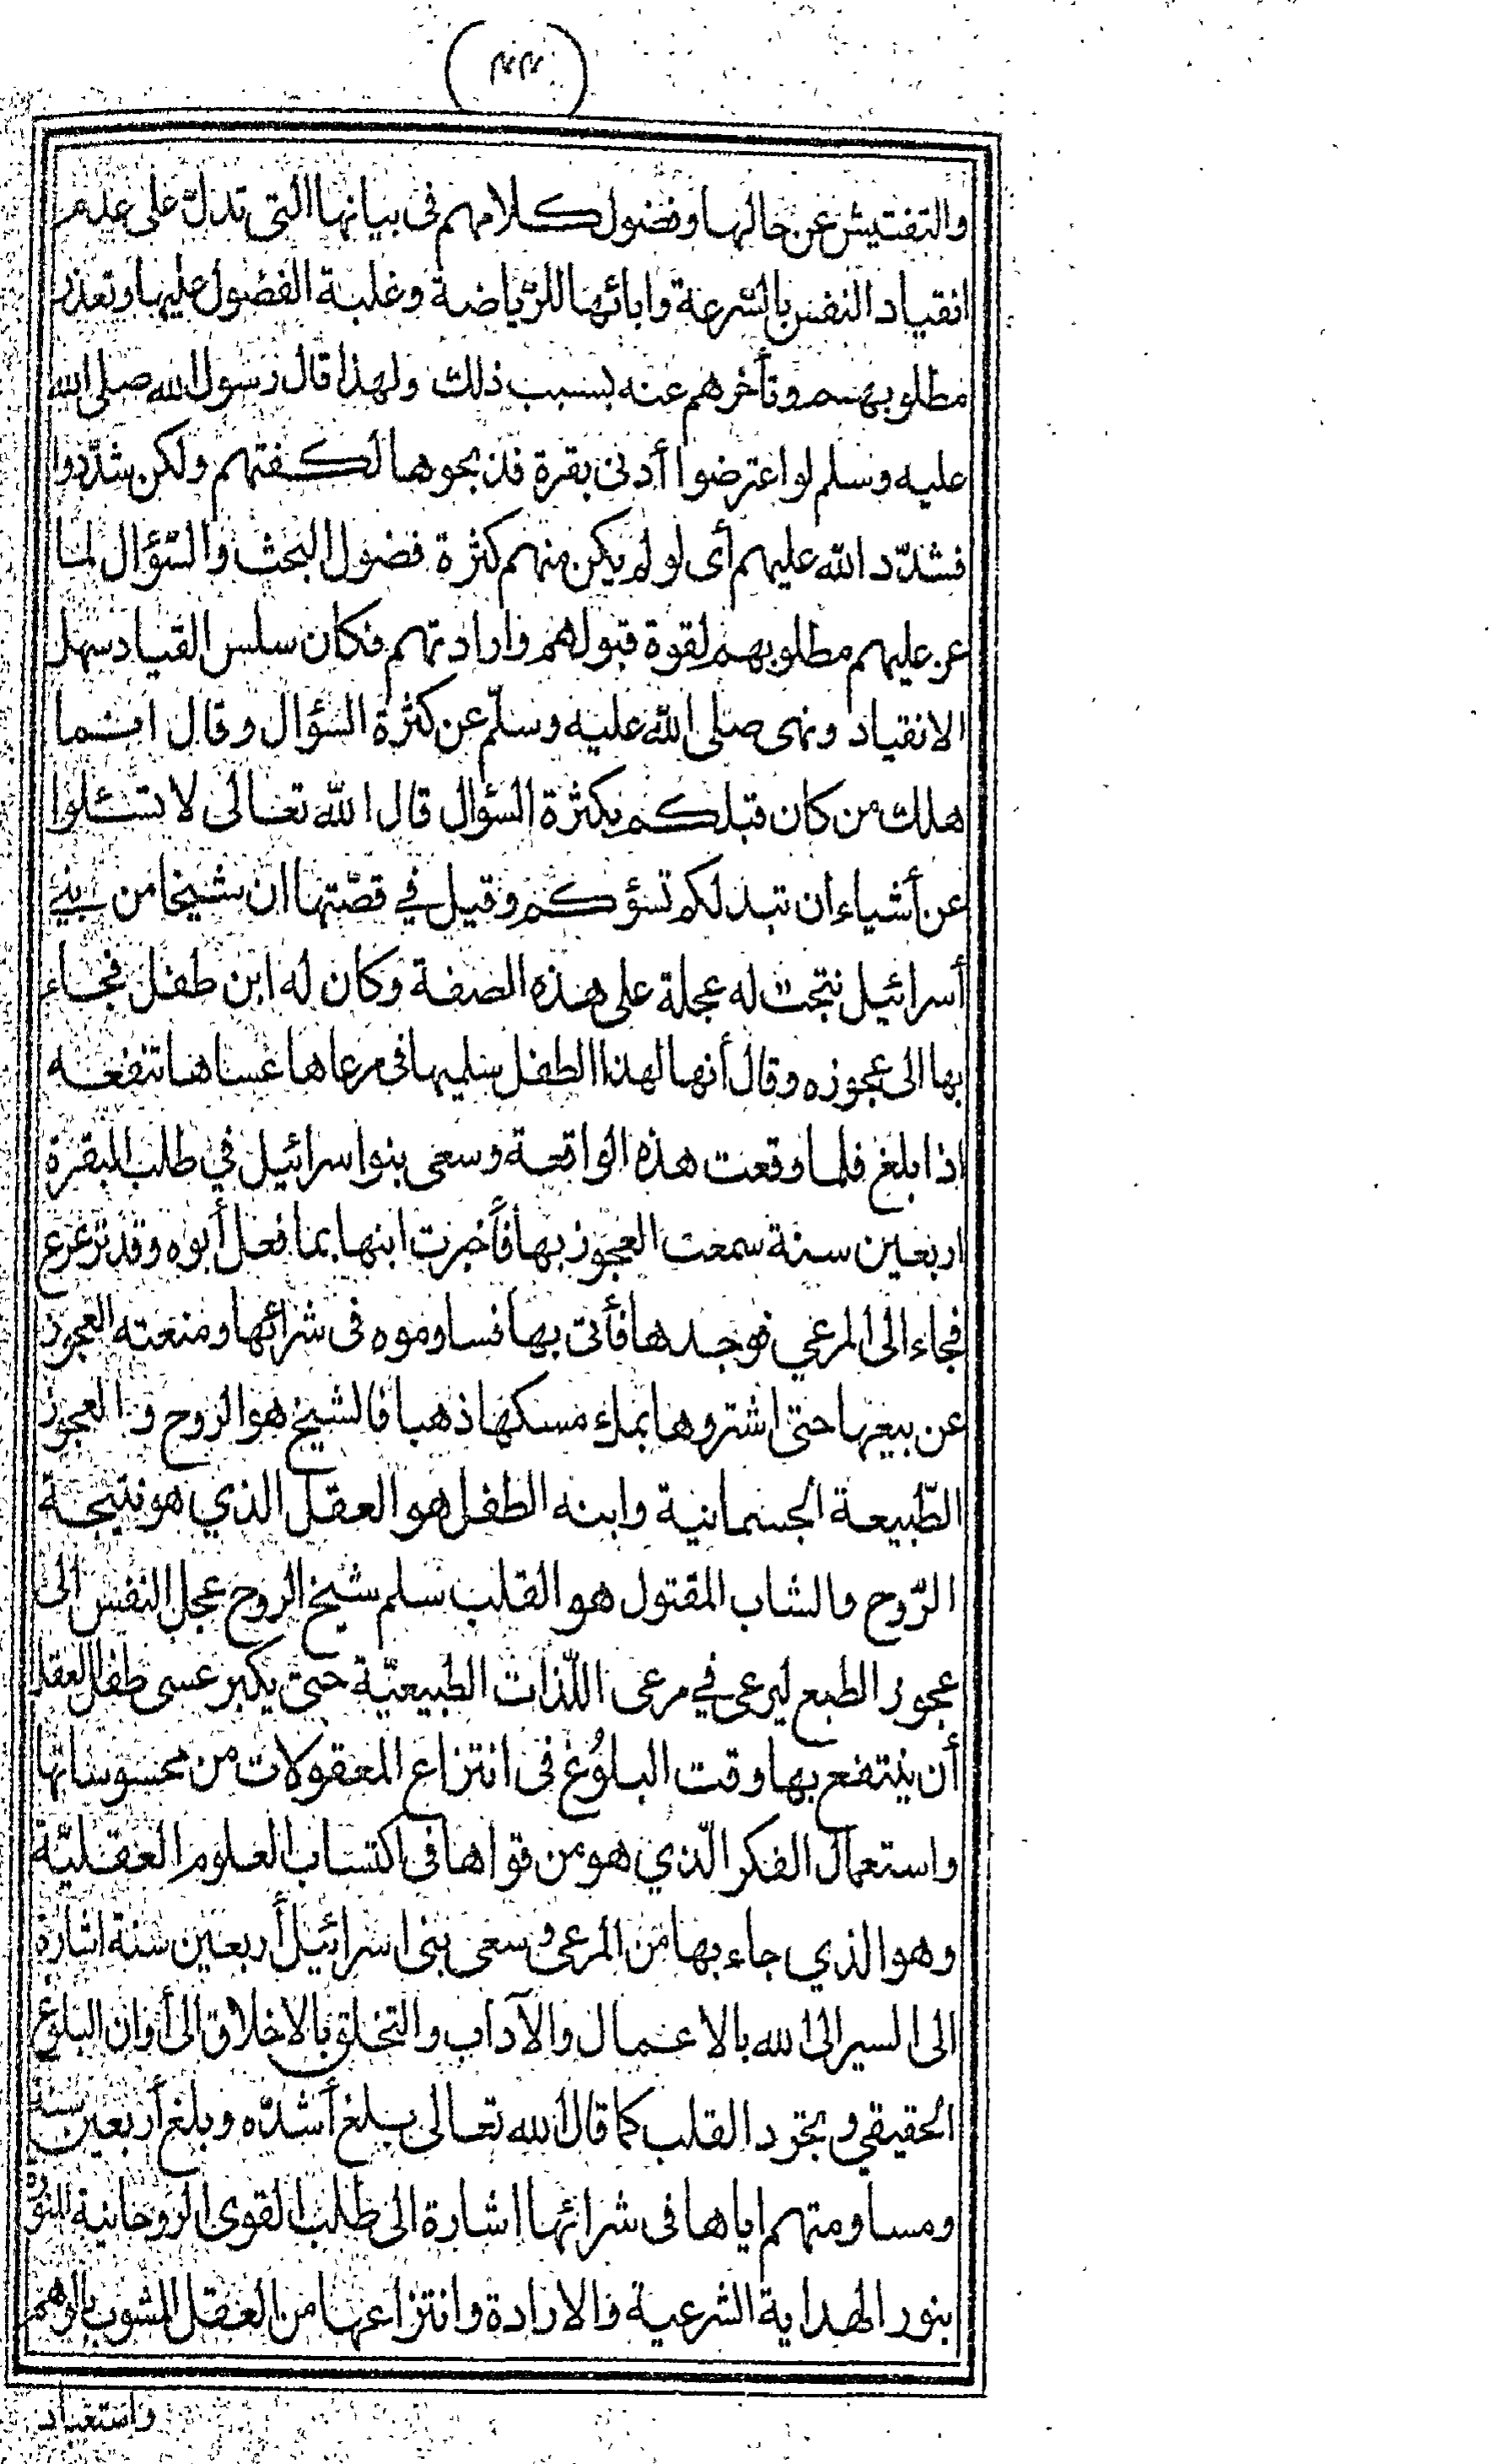 والتفتيش عن حالها وفضول كلامهم فى بيانها التى تدلّ على علم
انقياد النفس بالسّرعة وابائها للرّياضة وغلبة الفضول عليها وتعذر
مطلوبهم وتأخرهم عنه بسبب ذلك ولهذا قال رسول الله صلى الله
عليه وسلم لو اعترضوا أدنى بقرة فذبحوها لكفتهم ولكن شدّدوا
فشدّد الله عليهم أى لو لم يكن منهم كثرة فضول البحث والسّؤال لما
عز عليهم مطلوبهم لقوة قبولهم وارادتهم فكان سلس القياد سهل
الانقياد ونهى صلى الله عليه وسلّم عن كثرة السؤال وقال انما
هلك من كان قبلكم بكثرة السؤال قال الله تعالى لا تسئلوا
عن أشياء ان تبد لكم تسؤكم وقيل في قصّتها ان شيخا من بني
أسرائيل نتجت له عجلة على هذه الصفة وكان له ابن طفل فجاء
بها الى عجوزه وقال أنها لهذا الطفل سلميها فى مرعاها عساها تنفعه
اذا بلغ فلما وقعت هذه الواقعة وسعى بنوا سرائيل في طلب البقرة
اربعين سنة سمعت العجوز بها فأخبرت ابنها بما فعل أبوه وقد ترعرع
فجاء الى المرعي فوجدها فأتى بها فساوموه فى شرائها ومنعته العجوز
عن بيعها حتى اشتروها بملء مسكها ذهبا فالشيخ هو الروح والعجوز
الطّبيعة الجسمانية وابنه الطفل هو العقل الذي هو نتيجة
الرّوح والشاب المقتول هو القلب سلم شيخ الروح عجل النفس الى
عجوز الطبع ليرعى في مرعى اللّذات الطبيعيّة حتى يكبر عسى طفل العقل
أن ينتفع بها وقت البلوُغ فى انتزاع المعقولات من محسوساتها
واستعمال الفكر الّذي هو من قواها فى اكتساب العلوم العقليّة
وهو الذي جاء بها من المرعى وسعى بنى اسرائيل أربعين سنة اشارة
الى السير الى الله بالاعمال والآداب والتخلق بالاخلاق الى أوان البلوغ
الحقيقي وتجرد القلب كما قال الله تعالى بلغ أشدّه وبلغ أربعين سنة
ومساومتهم اياها فى شرائها اشارة الى طلب القوى الروحانية
بنور الهداية الشرعية والارادة وانتزاعها من العقل المشوب بالوهم
واستعباد